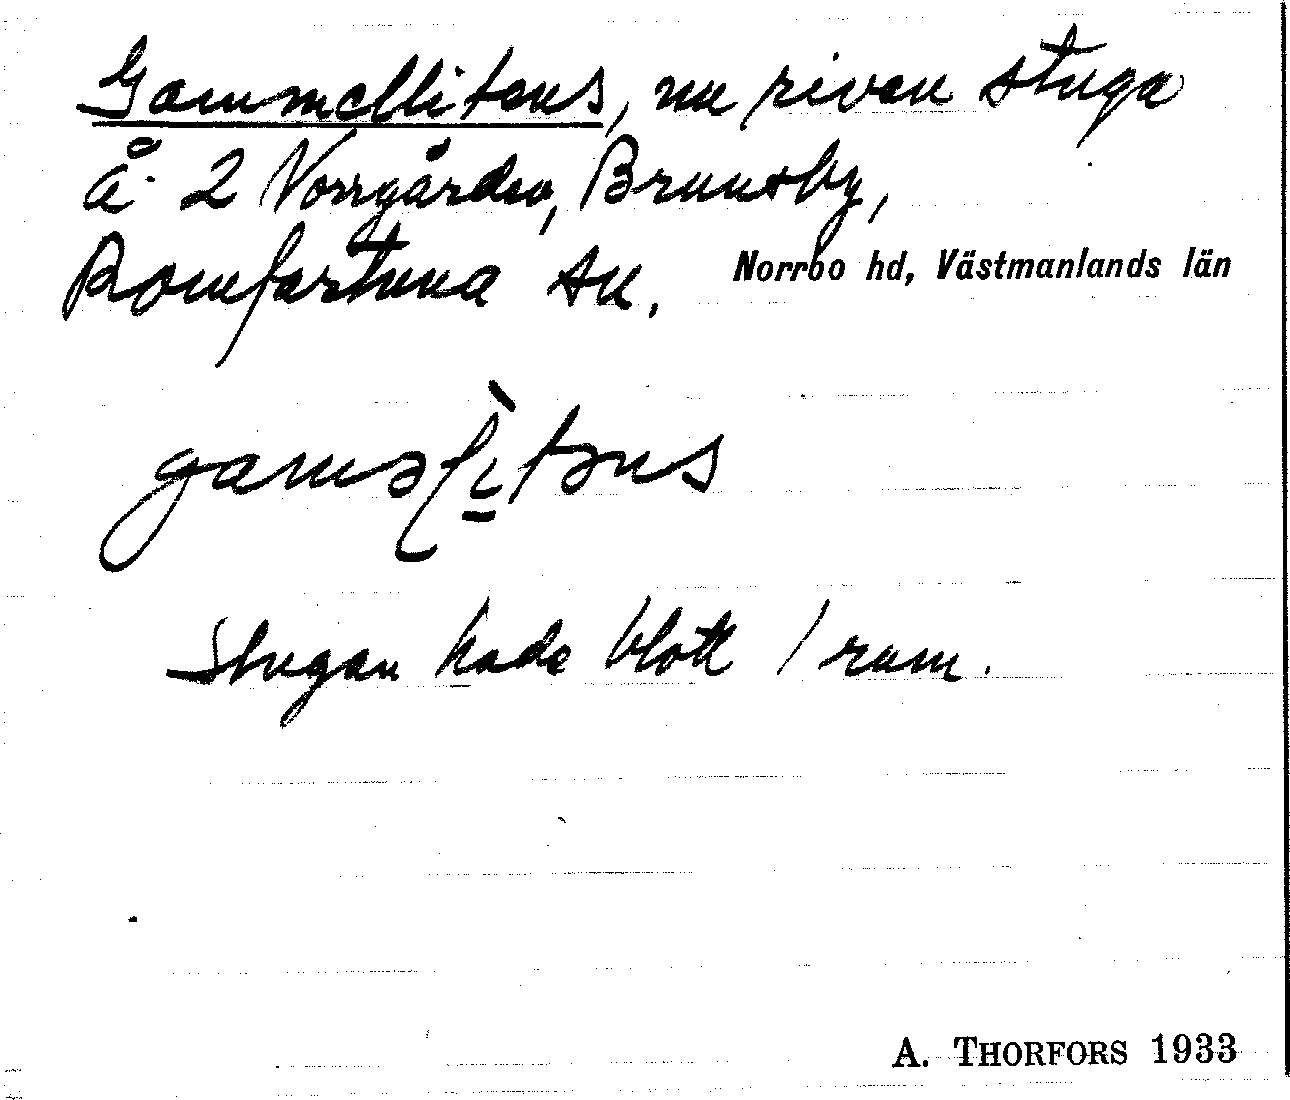 Gammellitens, nu riven stuga
å 2 Norrgården, Brunsby,
Romfartuna sn. Norrbo hd, Västmanlands län
gaməlìtəns
Stugan hade blott 1 rum.
A. THORFORS 1933